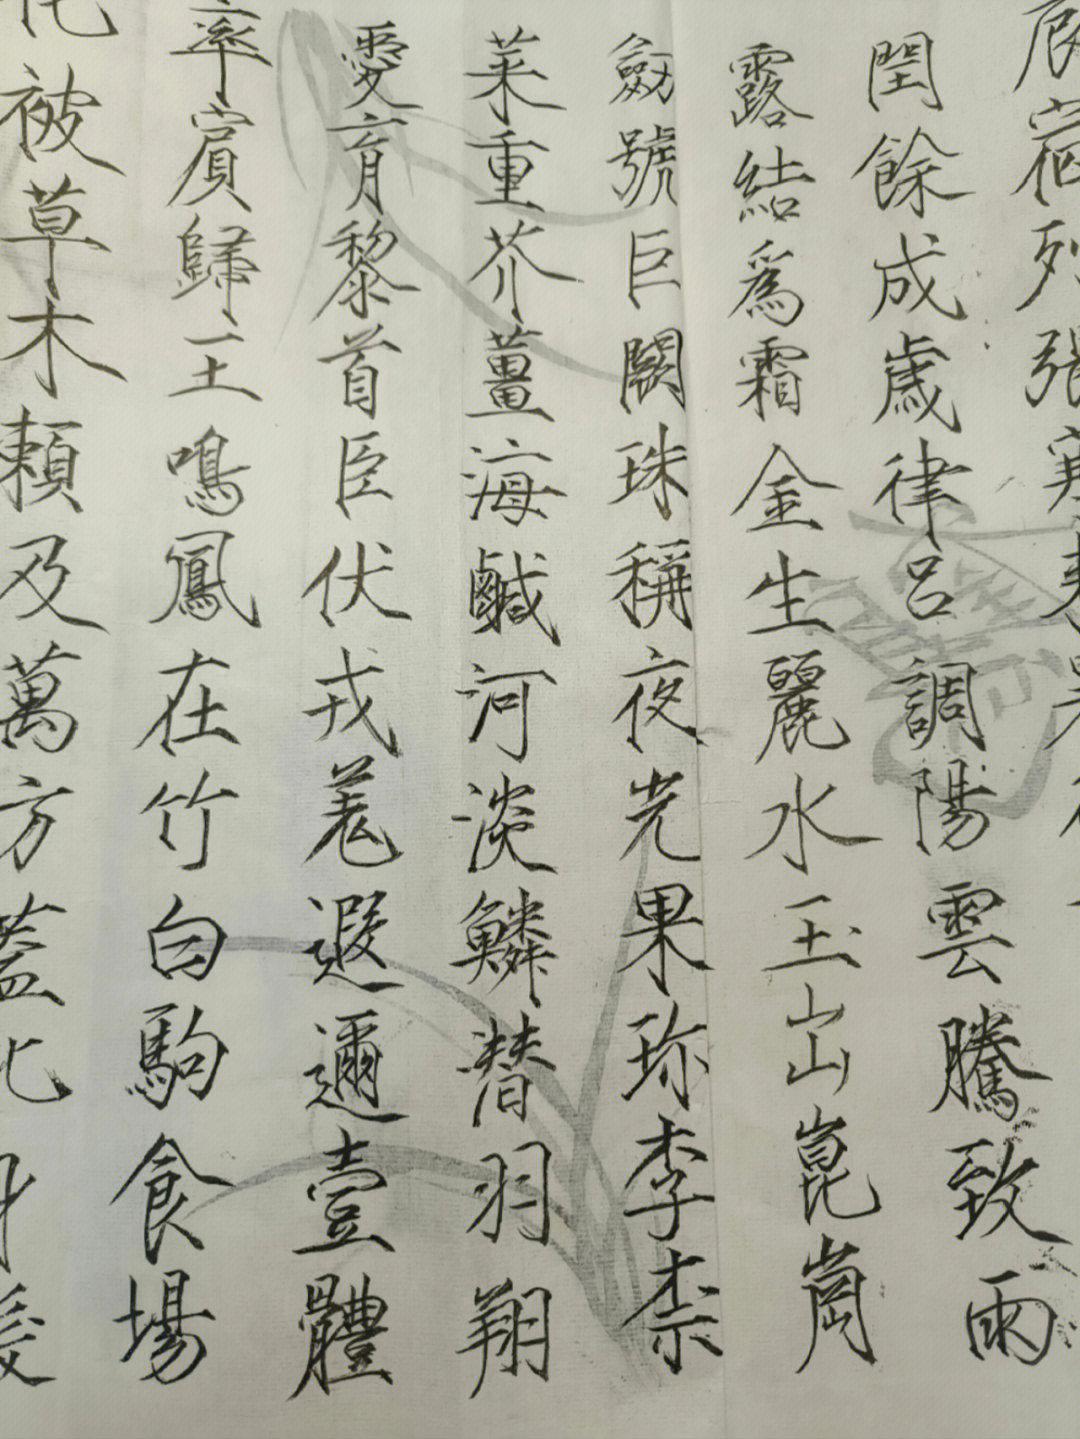 辰宿列張寒來暑
閏餘成歲律呂調陽雲騰致雨
露結為霜金生麗水玉出崑崗
劔號巨闕珠稱夜光果珎李柰
菜重芥薑海鹹河淡鱗潛羽翔
愛育黎首臣伏戎羌遐邇壹體
率賓歸王鳴鳳在竹白駒食場
化被草木賴及萬方蓋此身髮